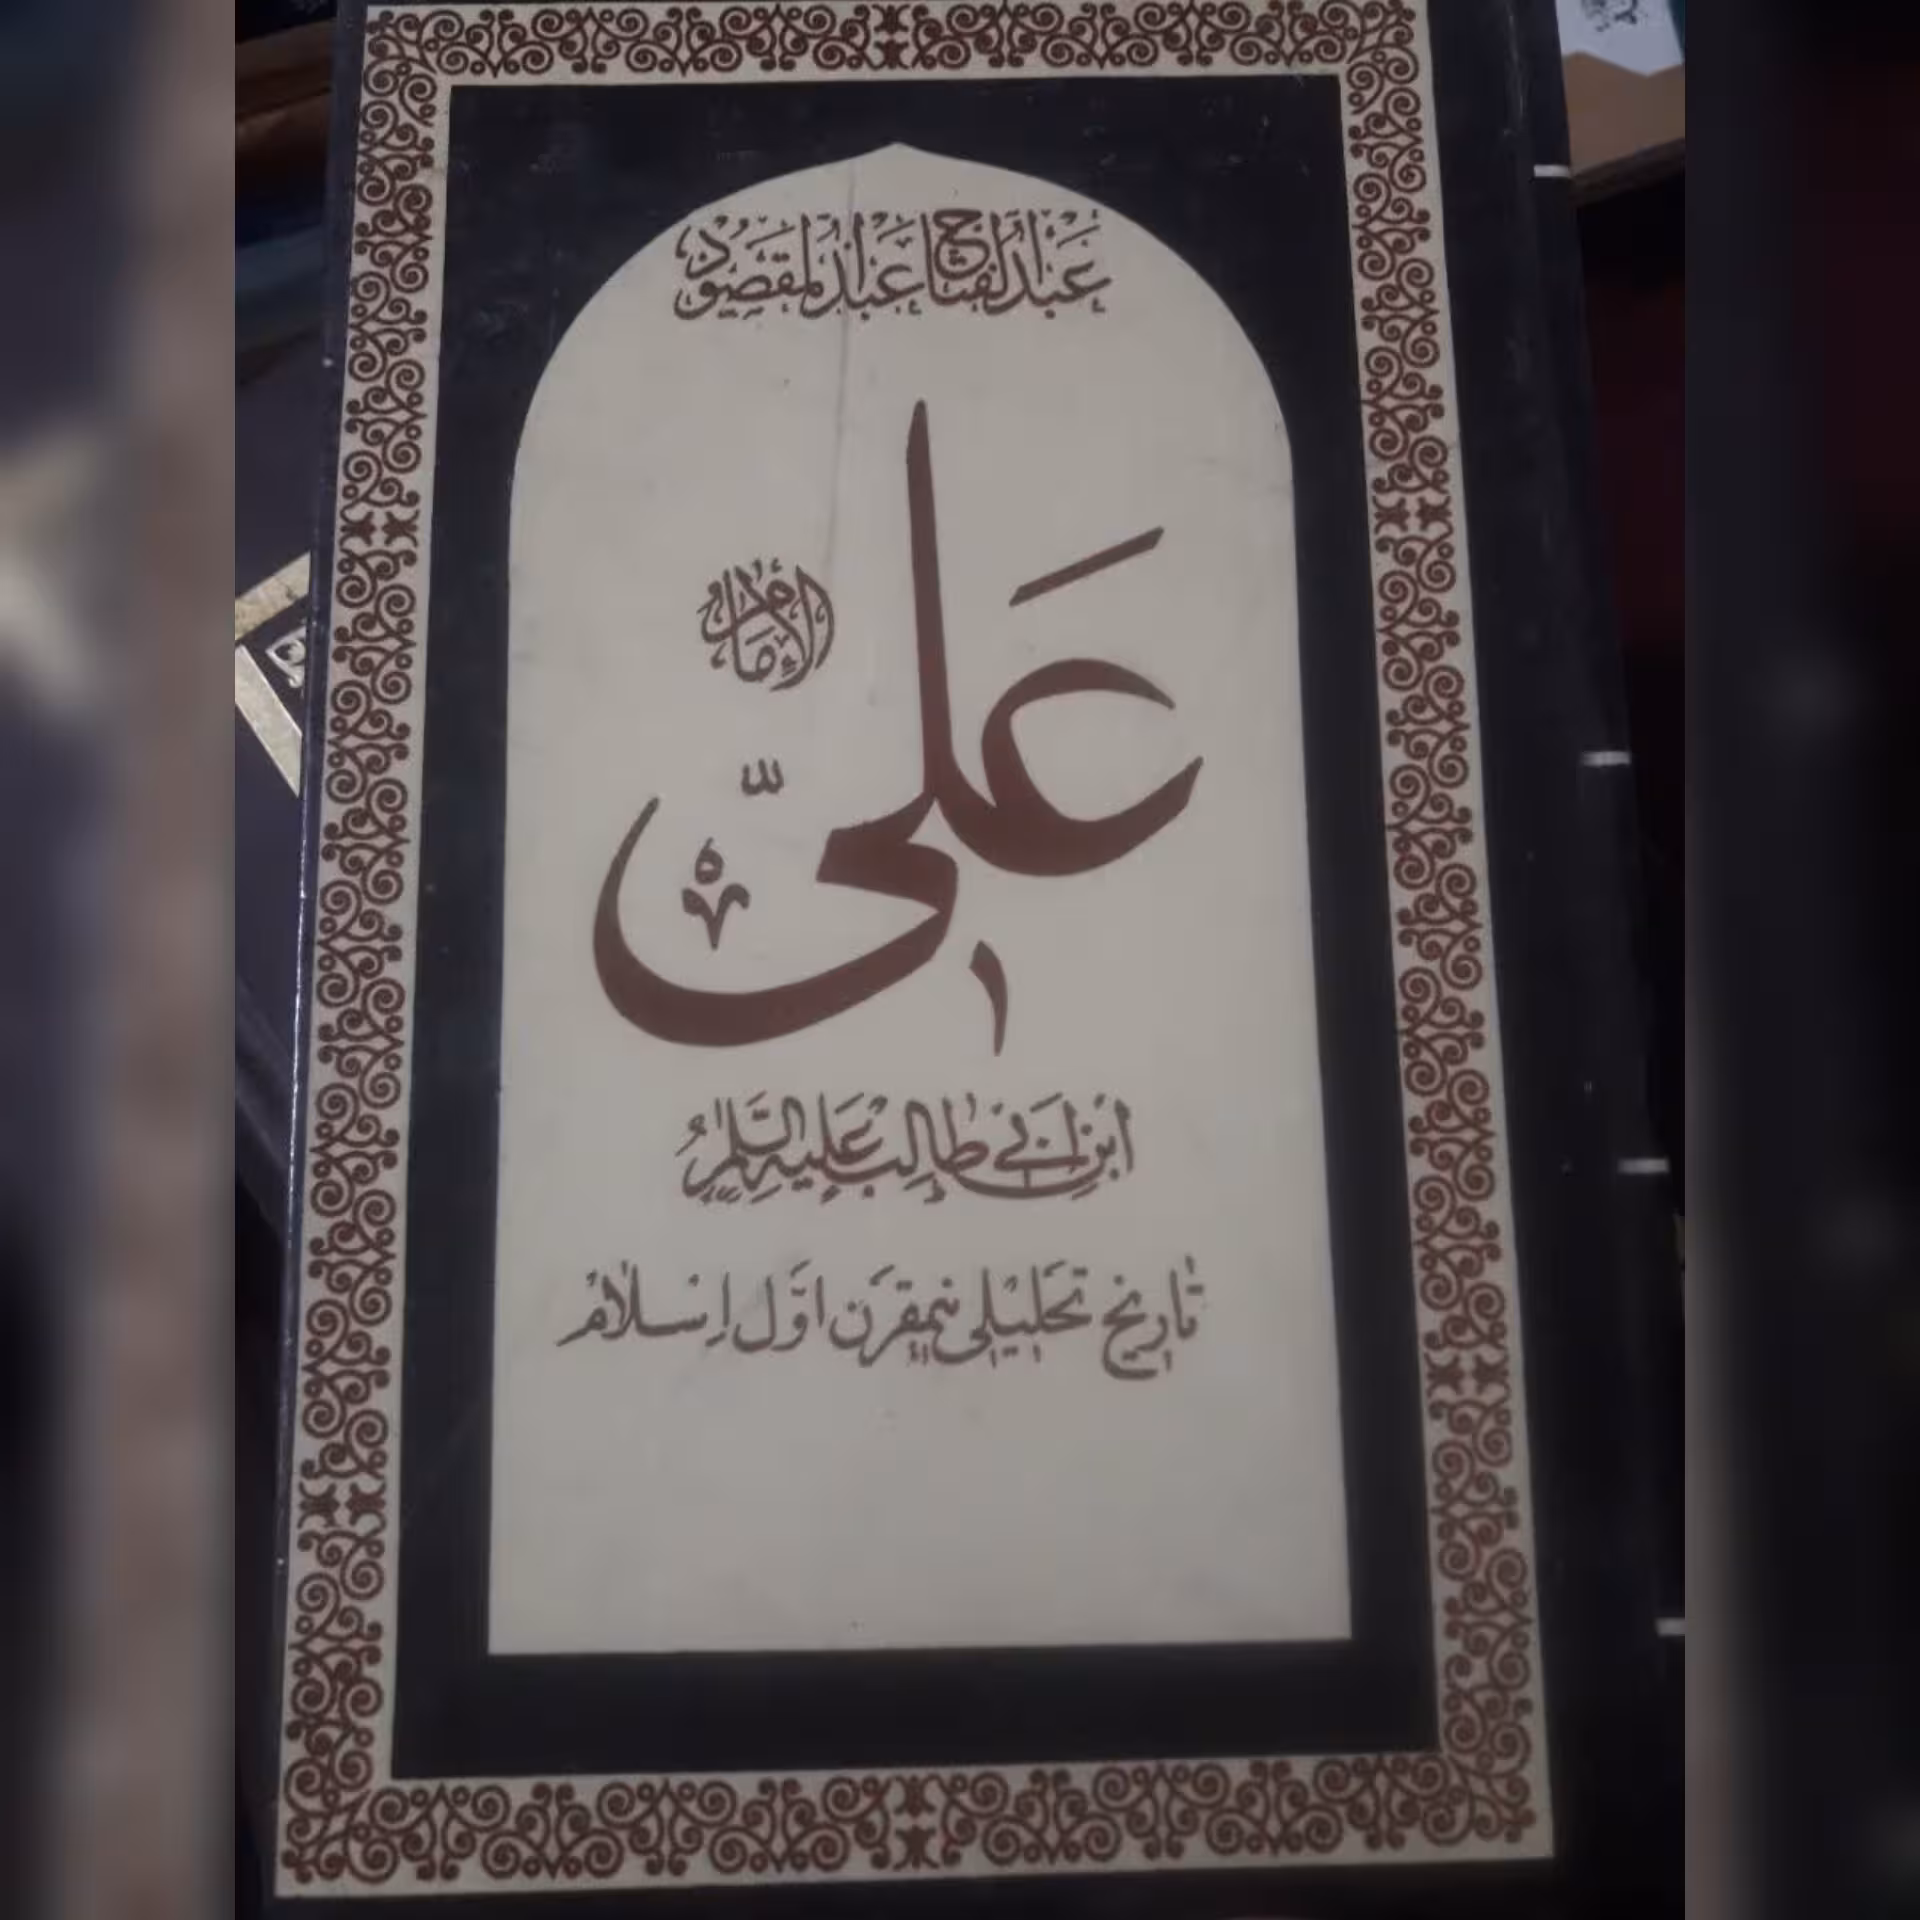 عبدالفتاح عبدالمقصود
الإمام
علیّ
ابن ابی طالب علیه السلام
تاریخ تحلیلی نیمقرن اول اسلام